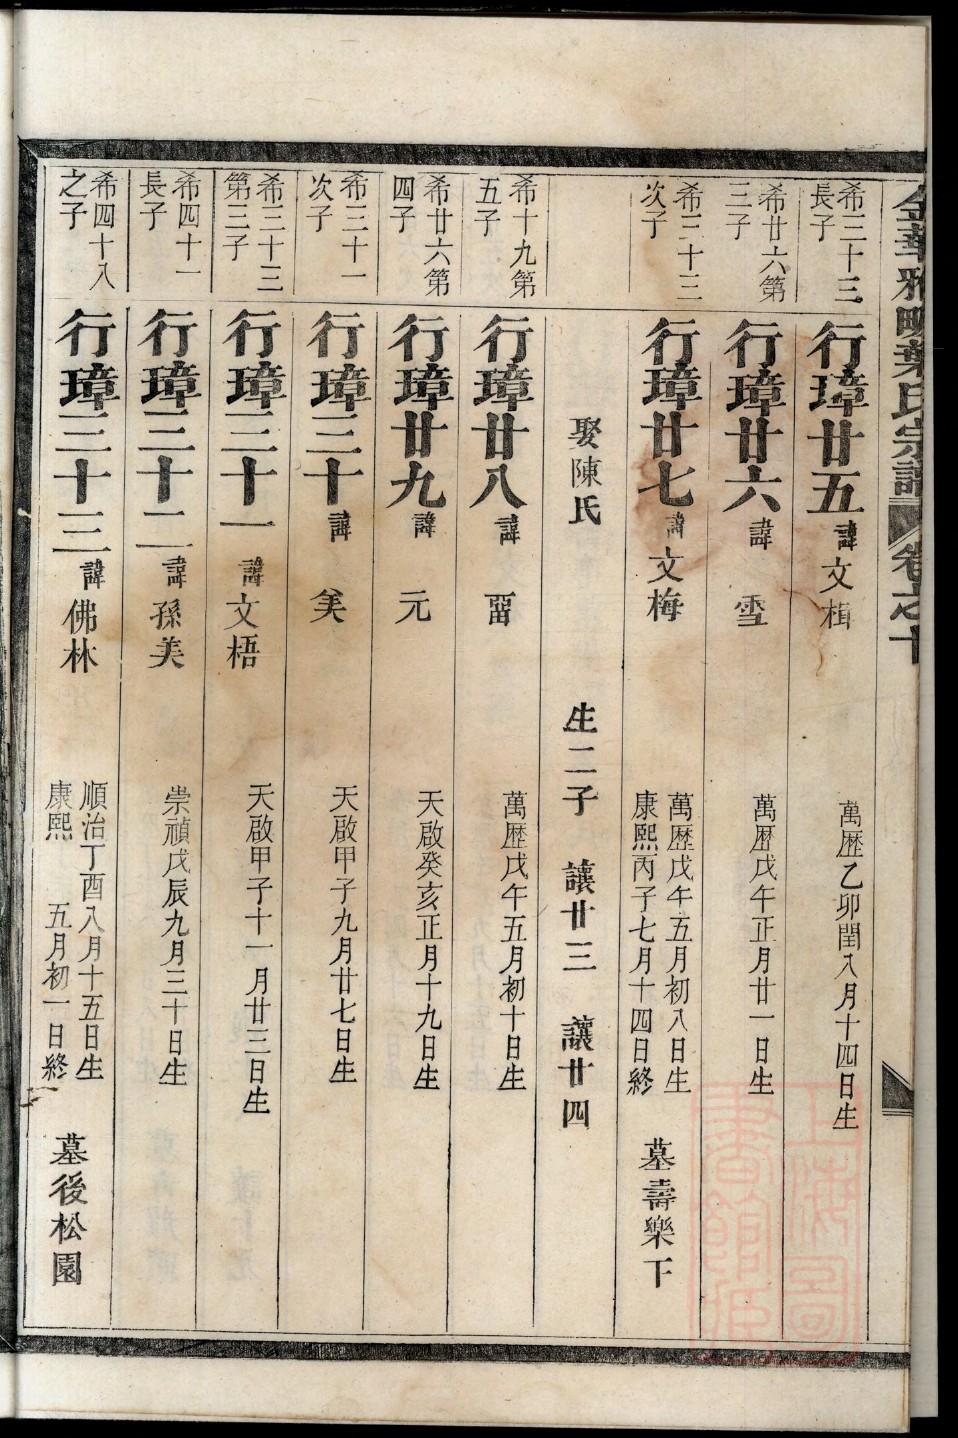 金華雅畈葉氏宗譜 卷之十
希三十三
長子
行璋廿五 諱 文楫 萬歷乙卯閏八月十四日生
希廿六第
三子
行璋廿六 諱 雪 萬歷戊午正月廿一日生
希三十三
次子
行璋廿七 諱 文梅 萬歷戊午五月初八日生
康熙丙子七月十四日終
墓壽樂下
娶陳氏 生二子 讓廿三 讓廿四
希十九第
五子
行璋廿八 諱 畱 萬歷戊午五月初十日生
希廿六第
四子
行璋廿九 諱 元 天啟癸亥正月十九日生
希三十一
次子
行璋三十 諱 美 天啟甲子九月廿七日生
希三十三
第三子
行璋三十一 諱 文梧 天啟甲子十一月廿三日生
希四十一
長子
行璋三十二 諱 孫美 崇禎戊辰九月三十日生
希四十八
之子
行璋三十三 諱 佛林 順治丁酉八月十五日生
康熙 五月初一日終
墓後松園
上海圖
書館藏